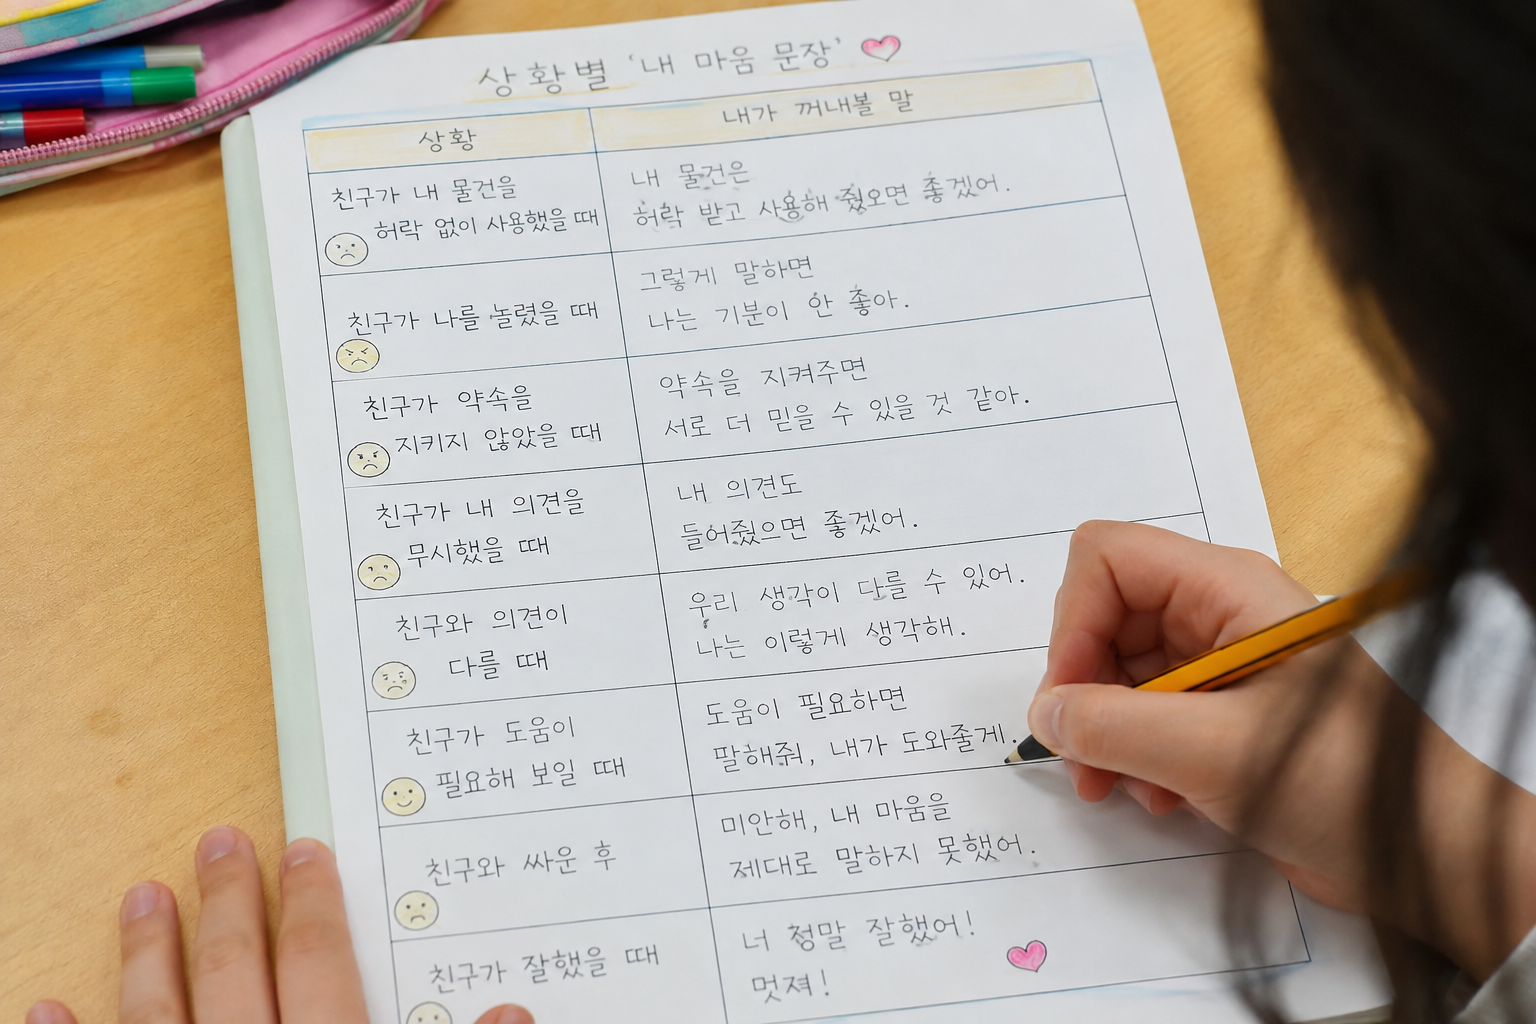 상황별 '내 마음 문장'
상황
내가 꺼내볼 말
친구가 내 물건을
허락 없이 사용했을 때
내 물건은
허락 받고 사용해 줬으면 좋겠어.
친구가 나를 놀렸을 때
그렇게 말하면
나는 기분이 안 좋아.
친구가 약속을
지키지 않았을 때
약속을 지켜주면
서로 더 믿을 수 있을 것 같아.
친구가 내 의견을
무시했을 때
내 의견도
들어줬으면 좋겠어.
친구와 의견이
다를 때
우리 생각이 다를 수 있어.
나는 이렇게 생각해.
친구가 도움이
필요해 보일 때
도움이 필요하면
말해줘, 내가 도와줄게.
친구와 싸운 후
미안해, 내 마음을
제대로 말하지 못했어.
친구가 잘했을 때
너 정말 잘했어!
멋져!